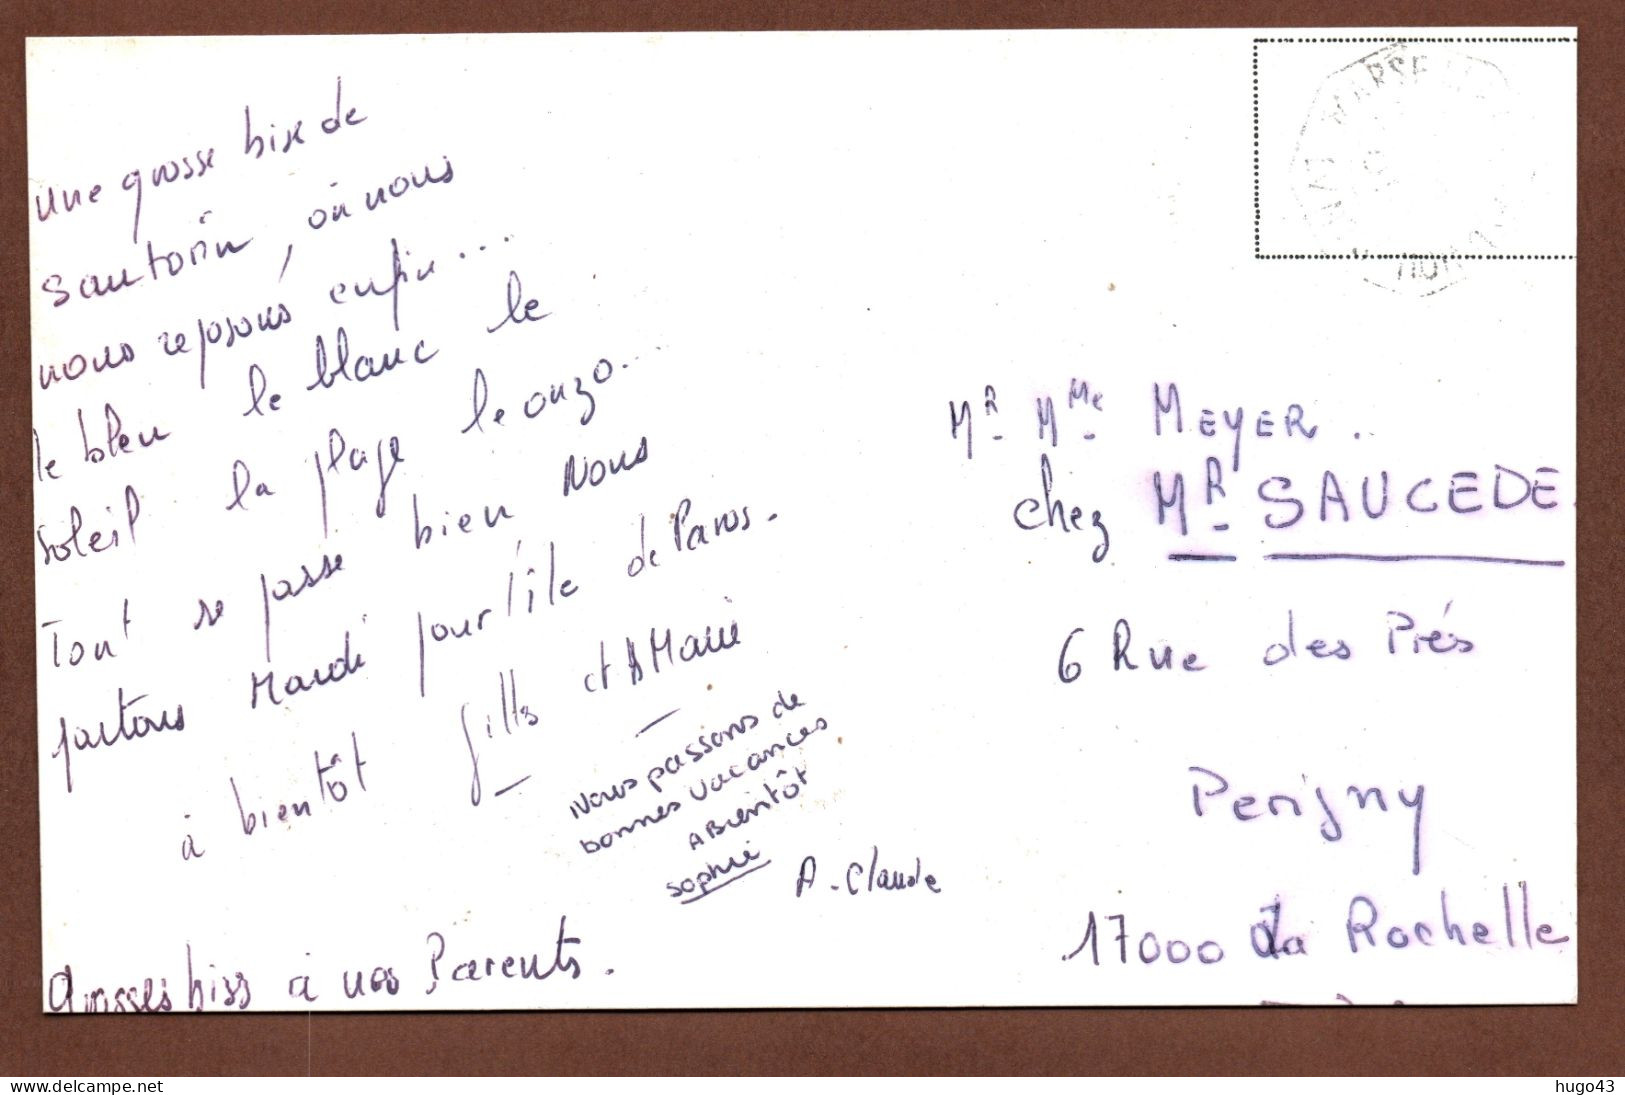 une grosse bise de
santorin, où nous
nous reposons enfin...
le bleu le blanc le
soleil la plage le ouzo...
Tout se passe bien Nous
partons Mardi pour l'île de Paros.
à bientôt gilles et A Marie
Nous passons de
bonnes vacances
A Bientôt
Sophie
A-Claude
Grosses biss à nos Parents.
MR MMe MEYER.
chez MR SAUCEDE
6 Rue des Prés
Perigny
17000 La Rochelle
delcampe.net
hugo43